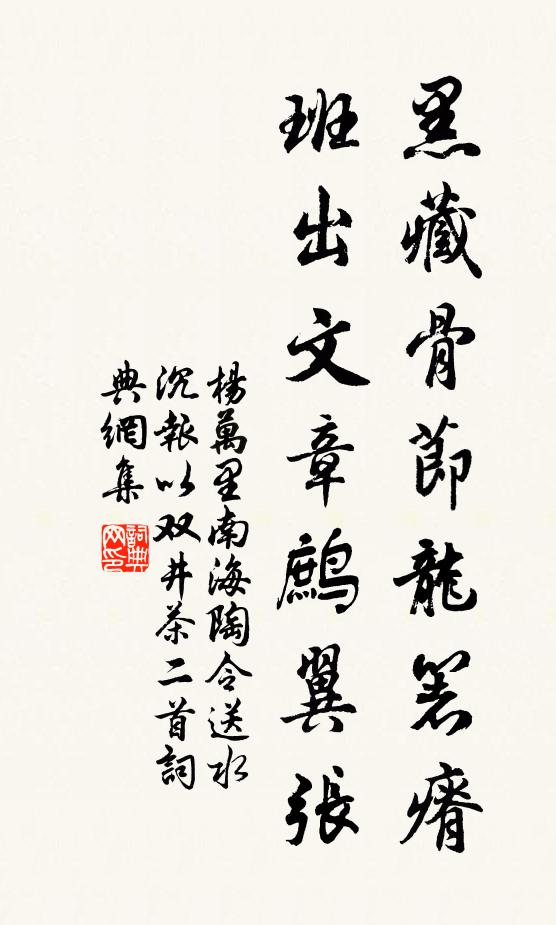 黑藏骨節龍筯瘠
班出文章鷓翼張
楊萬里南海陶令送水
沉報以双井茶二首詞
典網集
詞典
网印